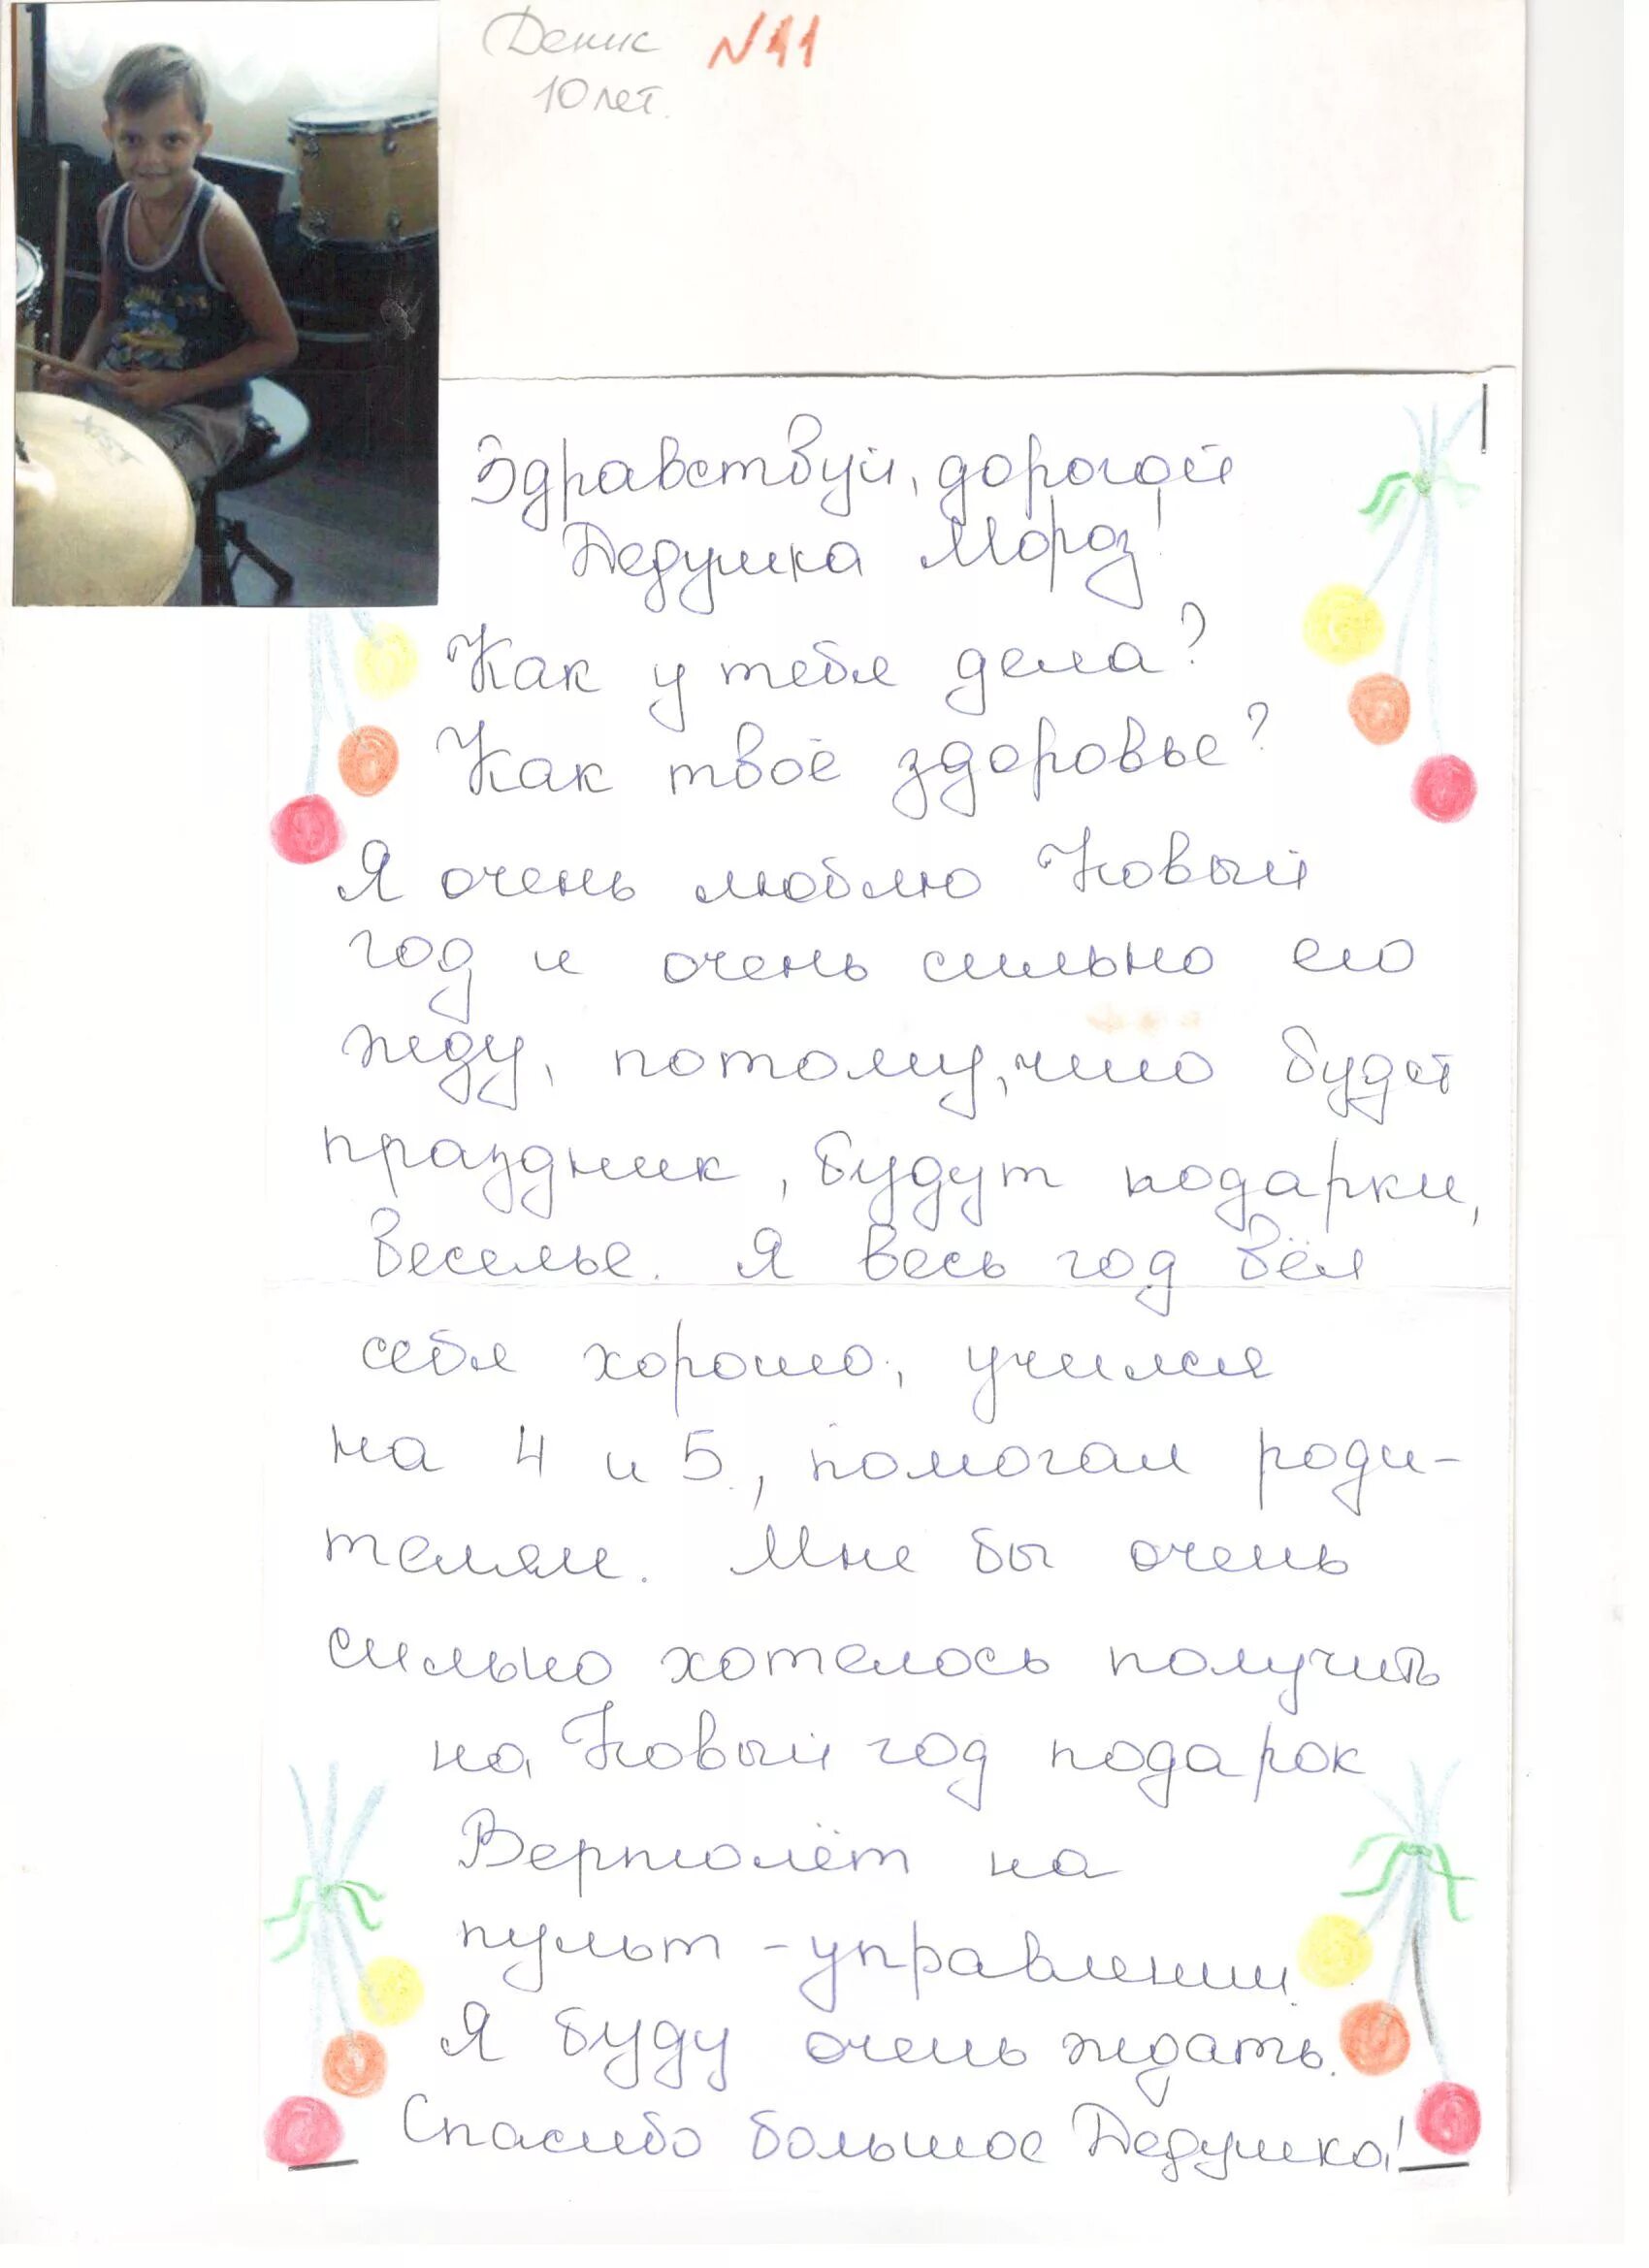 Денис №11
10 лет.
Здравствуй, дорогой
Дедушка Мороз!
Как у тебя дела?
Как твоё здоровье?
Я очень люблю Новый
год и очень сильно его
жду, потому, что будет
праздник, будут подарки,
веселье. Я весь год вёл
себя хорошо, учился
на 4 и 5, помогал роди-
телям. Мне бы очень
сильно хотелось получить
на Новый год подарок
Вертолёт на
пульт-управлении.
Я буду очень ждать.
Спасибо большое Дедушка!